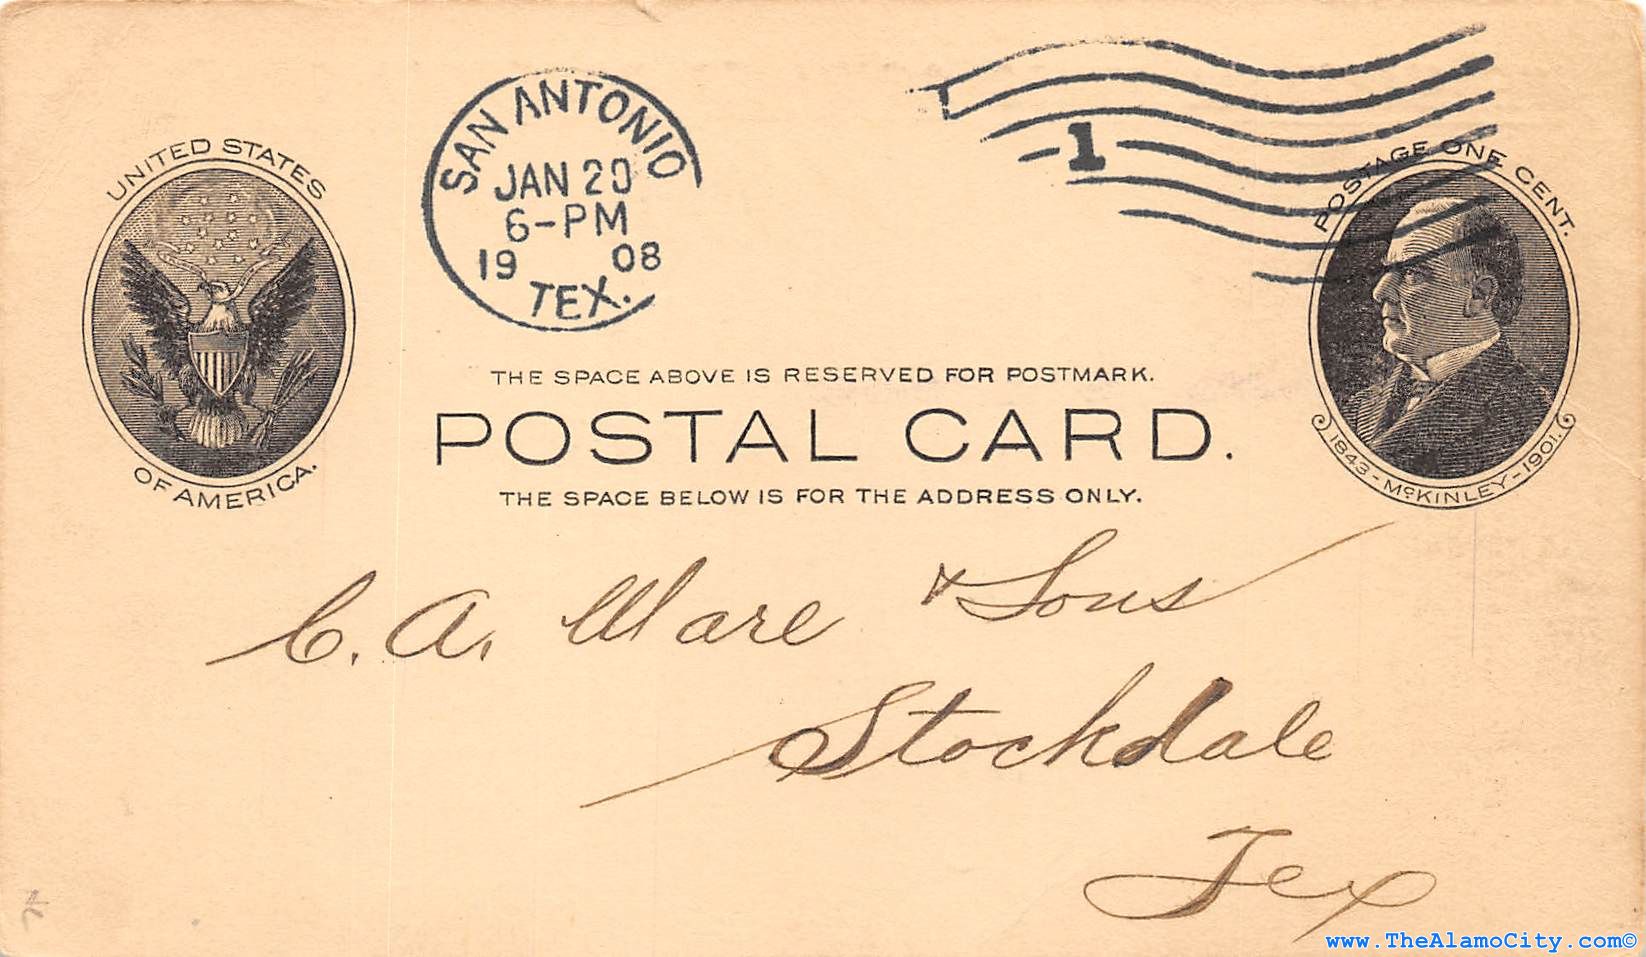 SAN ANTONIO
JAN 20
6-PM
19 08
TEX.
1
UNITED STATES
OF AMERICA.
POSTAGE ONE CENT.
1843-McKINLEY-1901.
THE SPACE ABOVE IS RESERVED FOR POSTMARK.
POSTAL CARD.
THE SPACE BELOW IS FOR THE ADDRESS ONLY.
C. A. Ware & Sons
Stockdale
Tex
www.TheAlamoCity.com©